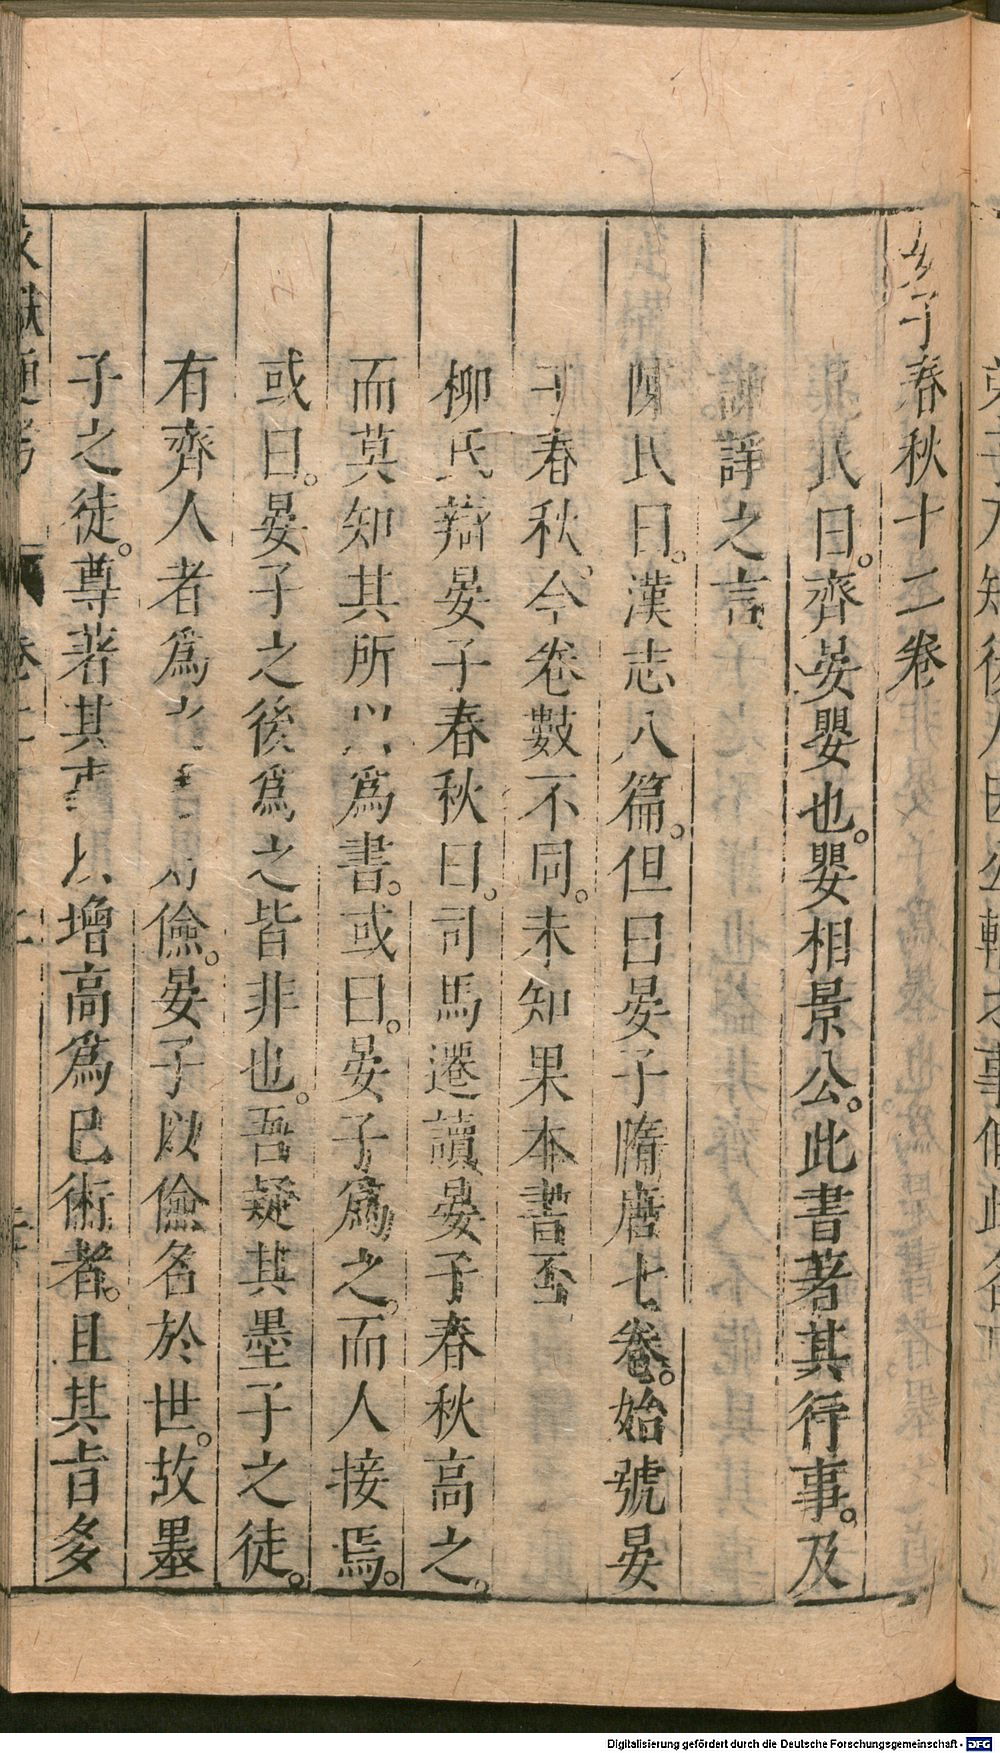 晏子春秋十二卷
晁氏曰。齊晏嬰也。嬰相景公。此書著其行事。及
諫諍之言
陳氏曰。漢志八篇。但曰晏子隋唐七卷。始號晏
子春秋。今卷數不同。未知果本書否
柳氏辯晏子春秋曰。司馬遷讀晏子春秋高之。
而莫知其所以爲書。或曰。晏子爲之。而人接焉。
或曰。晏子之後爲之皆非也。吾疑其墨子之徒。
有齊人者爲之 儉。晏子以儉名於世。故墨
子之徒。尊著其事以增高爲己術者。且其旨多
Digitalisierung gefördert durch die Deutsche Forschungsgemeinschaft - DFG